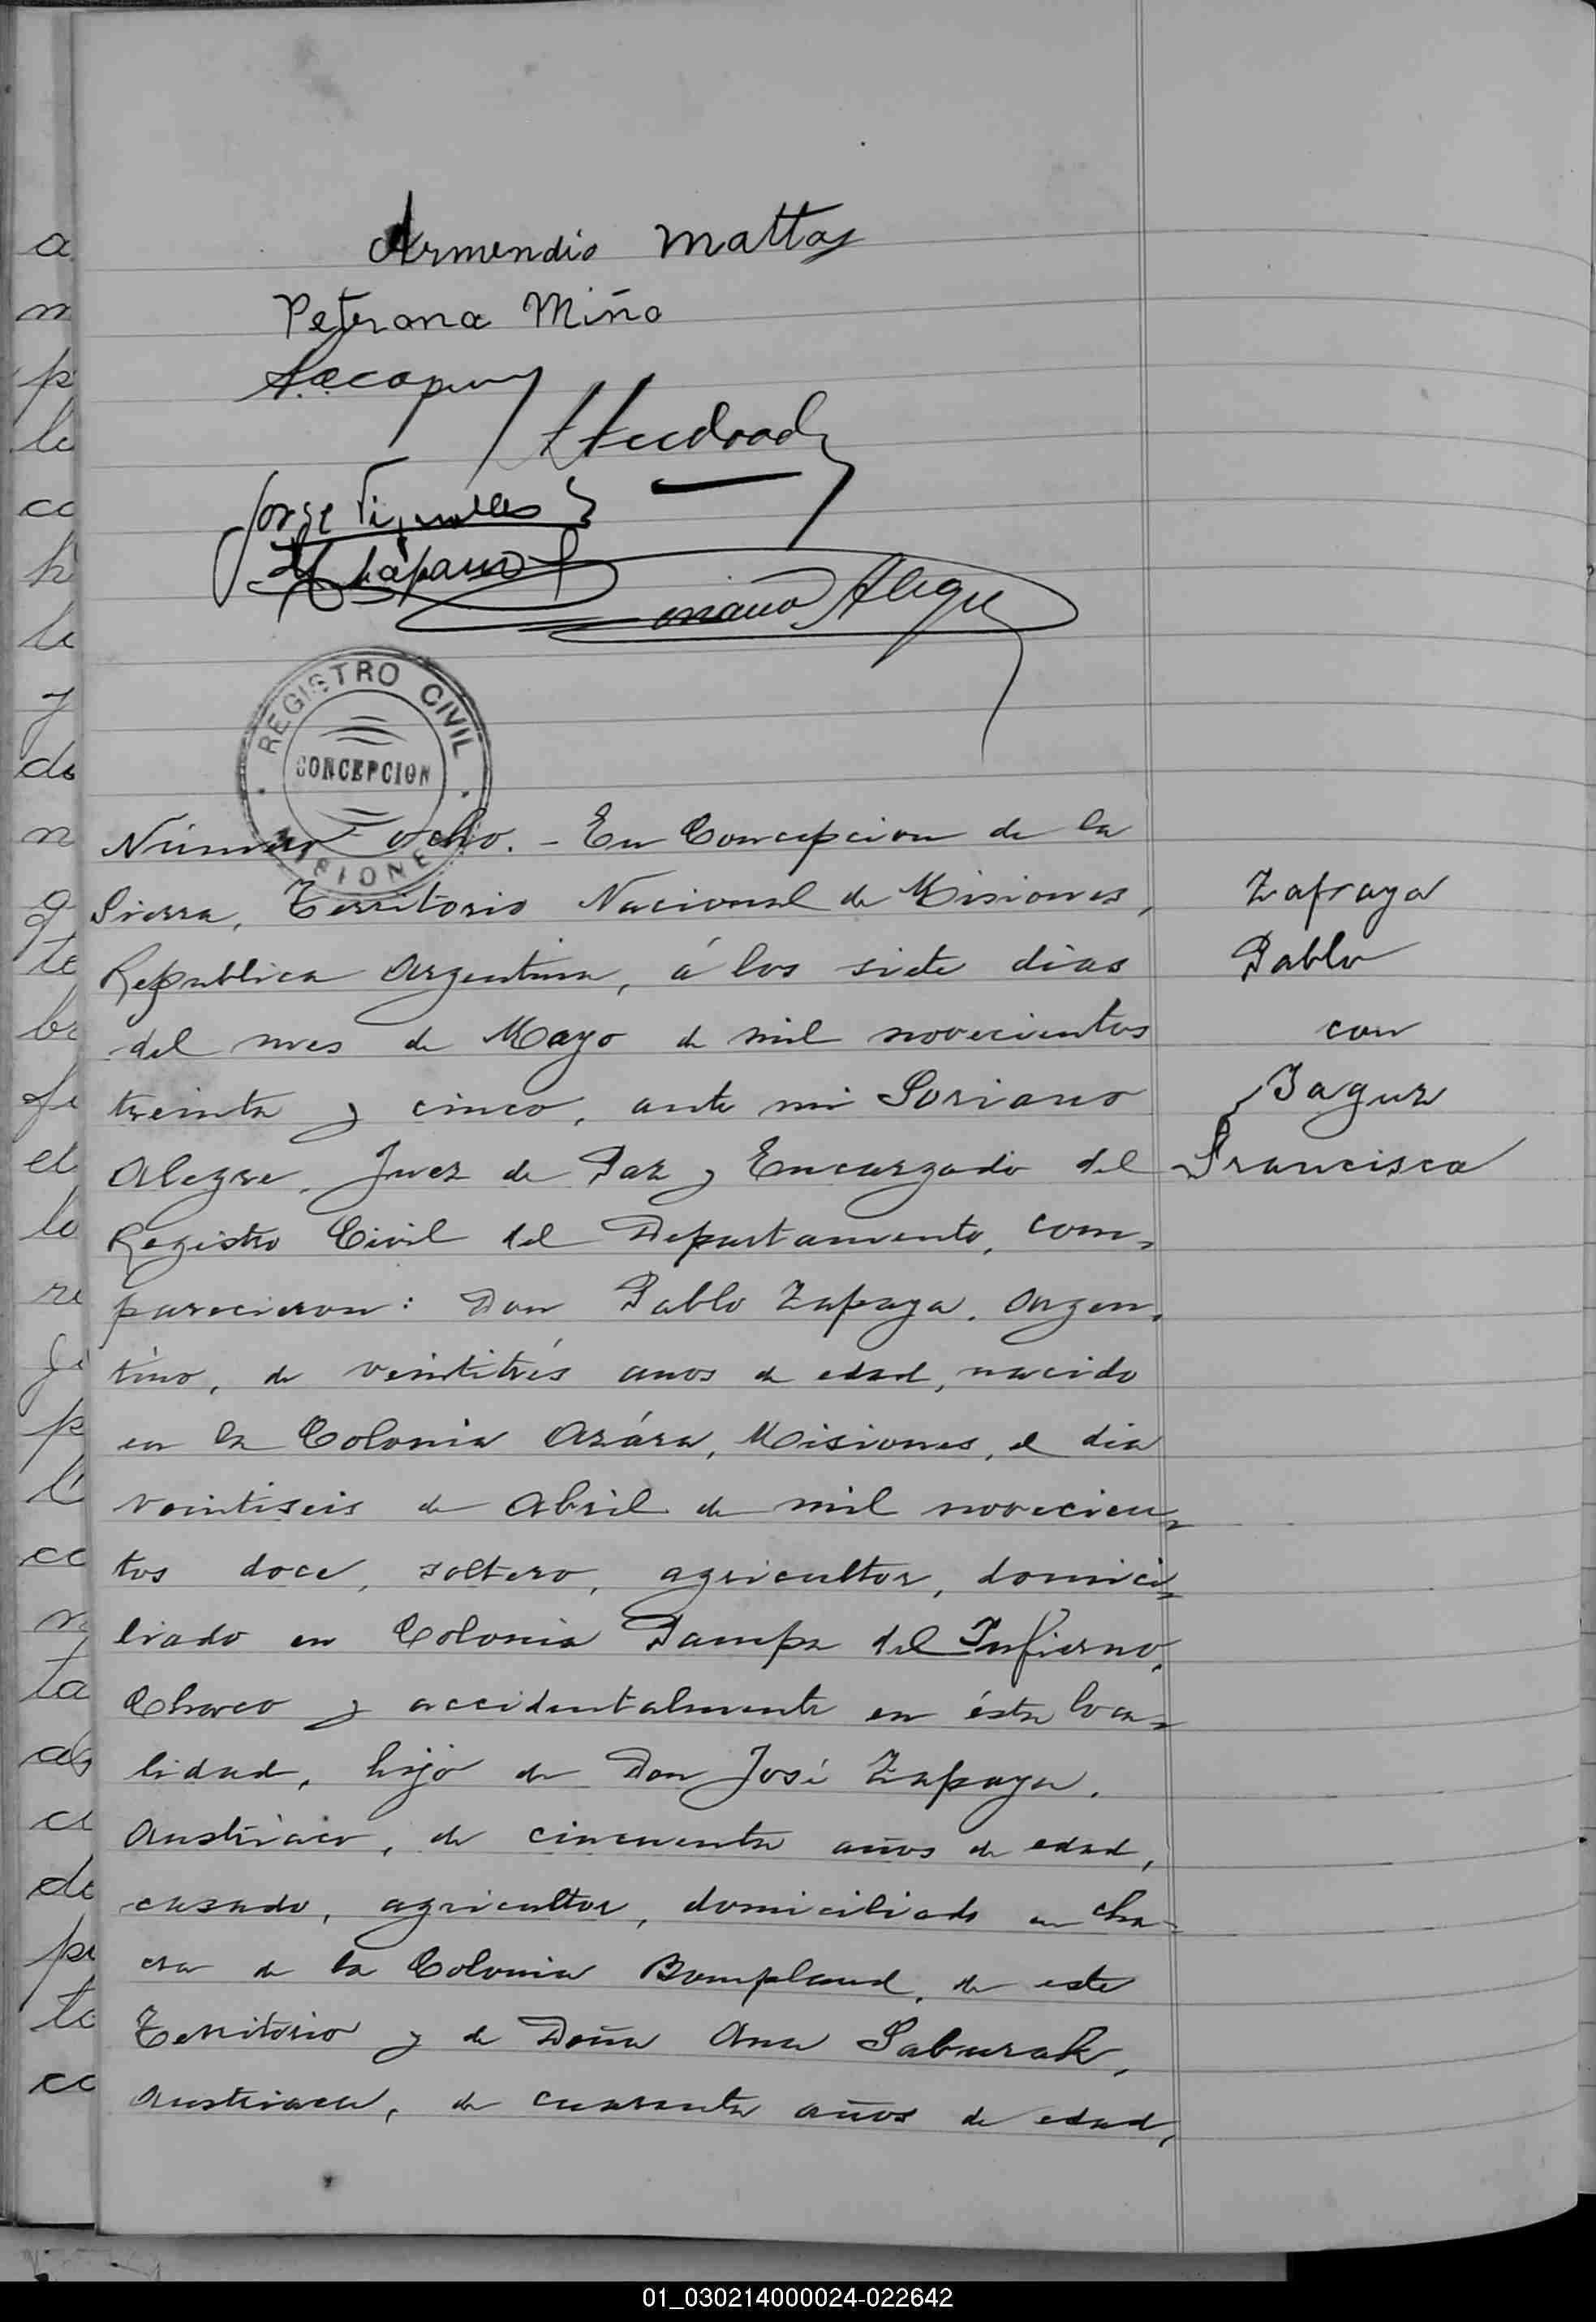 Armendio Mattos
Peterona Miño
Jorge
Soriano Alegre
REGISTRO CIVIL
CONCEPCION
MISIONES
Número ocho. - En Concepcion de la
Sierra, Territorio Nacional de Misiones,
Republica Argentina, á los siete dias
del mes de Mayo de mil novecientos
treinta y cinco, ante mi Soriano
Alegre, Juez de Paz y Encargado del
Registro Civil del Departamento, com=
parecieron: Don Pablo Zapaya, Argen=
tino, de veintitrés anos de edad, nacido
en la Colonia Azára, Misiones, el dia
veintiseis de Abril de mil novecien=
tos doce, soltero, agricultor, domici=
liado en Colonia Pampa del Infierno,
Chaco y accidentalmente en ésta loca=
lidad, hijo de Don José Zapaya,
Austriaco, de cincuenta años de edad,
casado, agricultor, domiciliado en cha=
cra de la Colonia Bompland, de este
Territorio y de Doña Ana Saburak,
Austriaca, de cuarenta años de edad,
Zafraya
Pablo
con
Jaguz
Francisca
a
m
p
le
co
h
le
y
do
n
q
te
br
fe
el
lo
re
p
ce
ta
ce
de
pr
te
cc
01_030214000024-022642